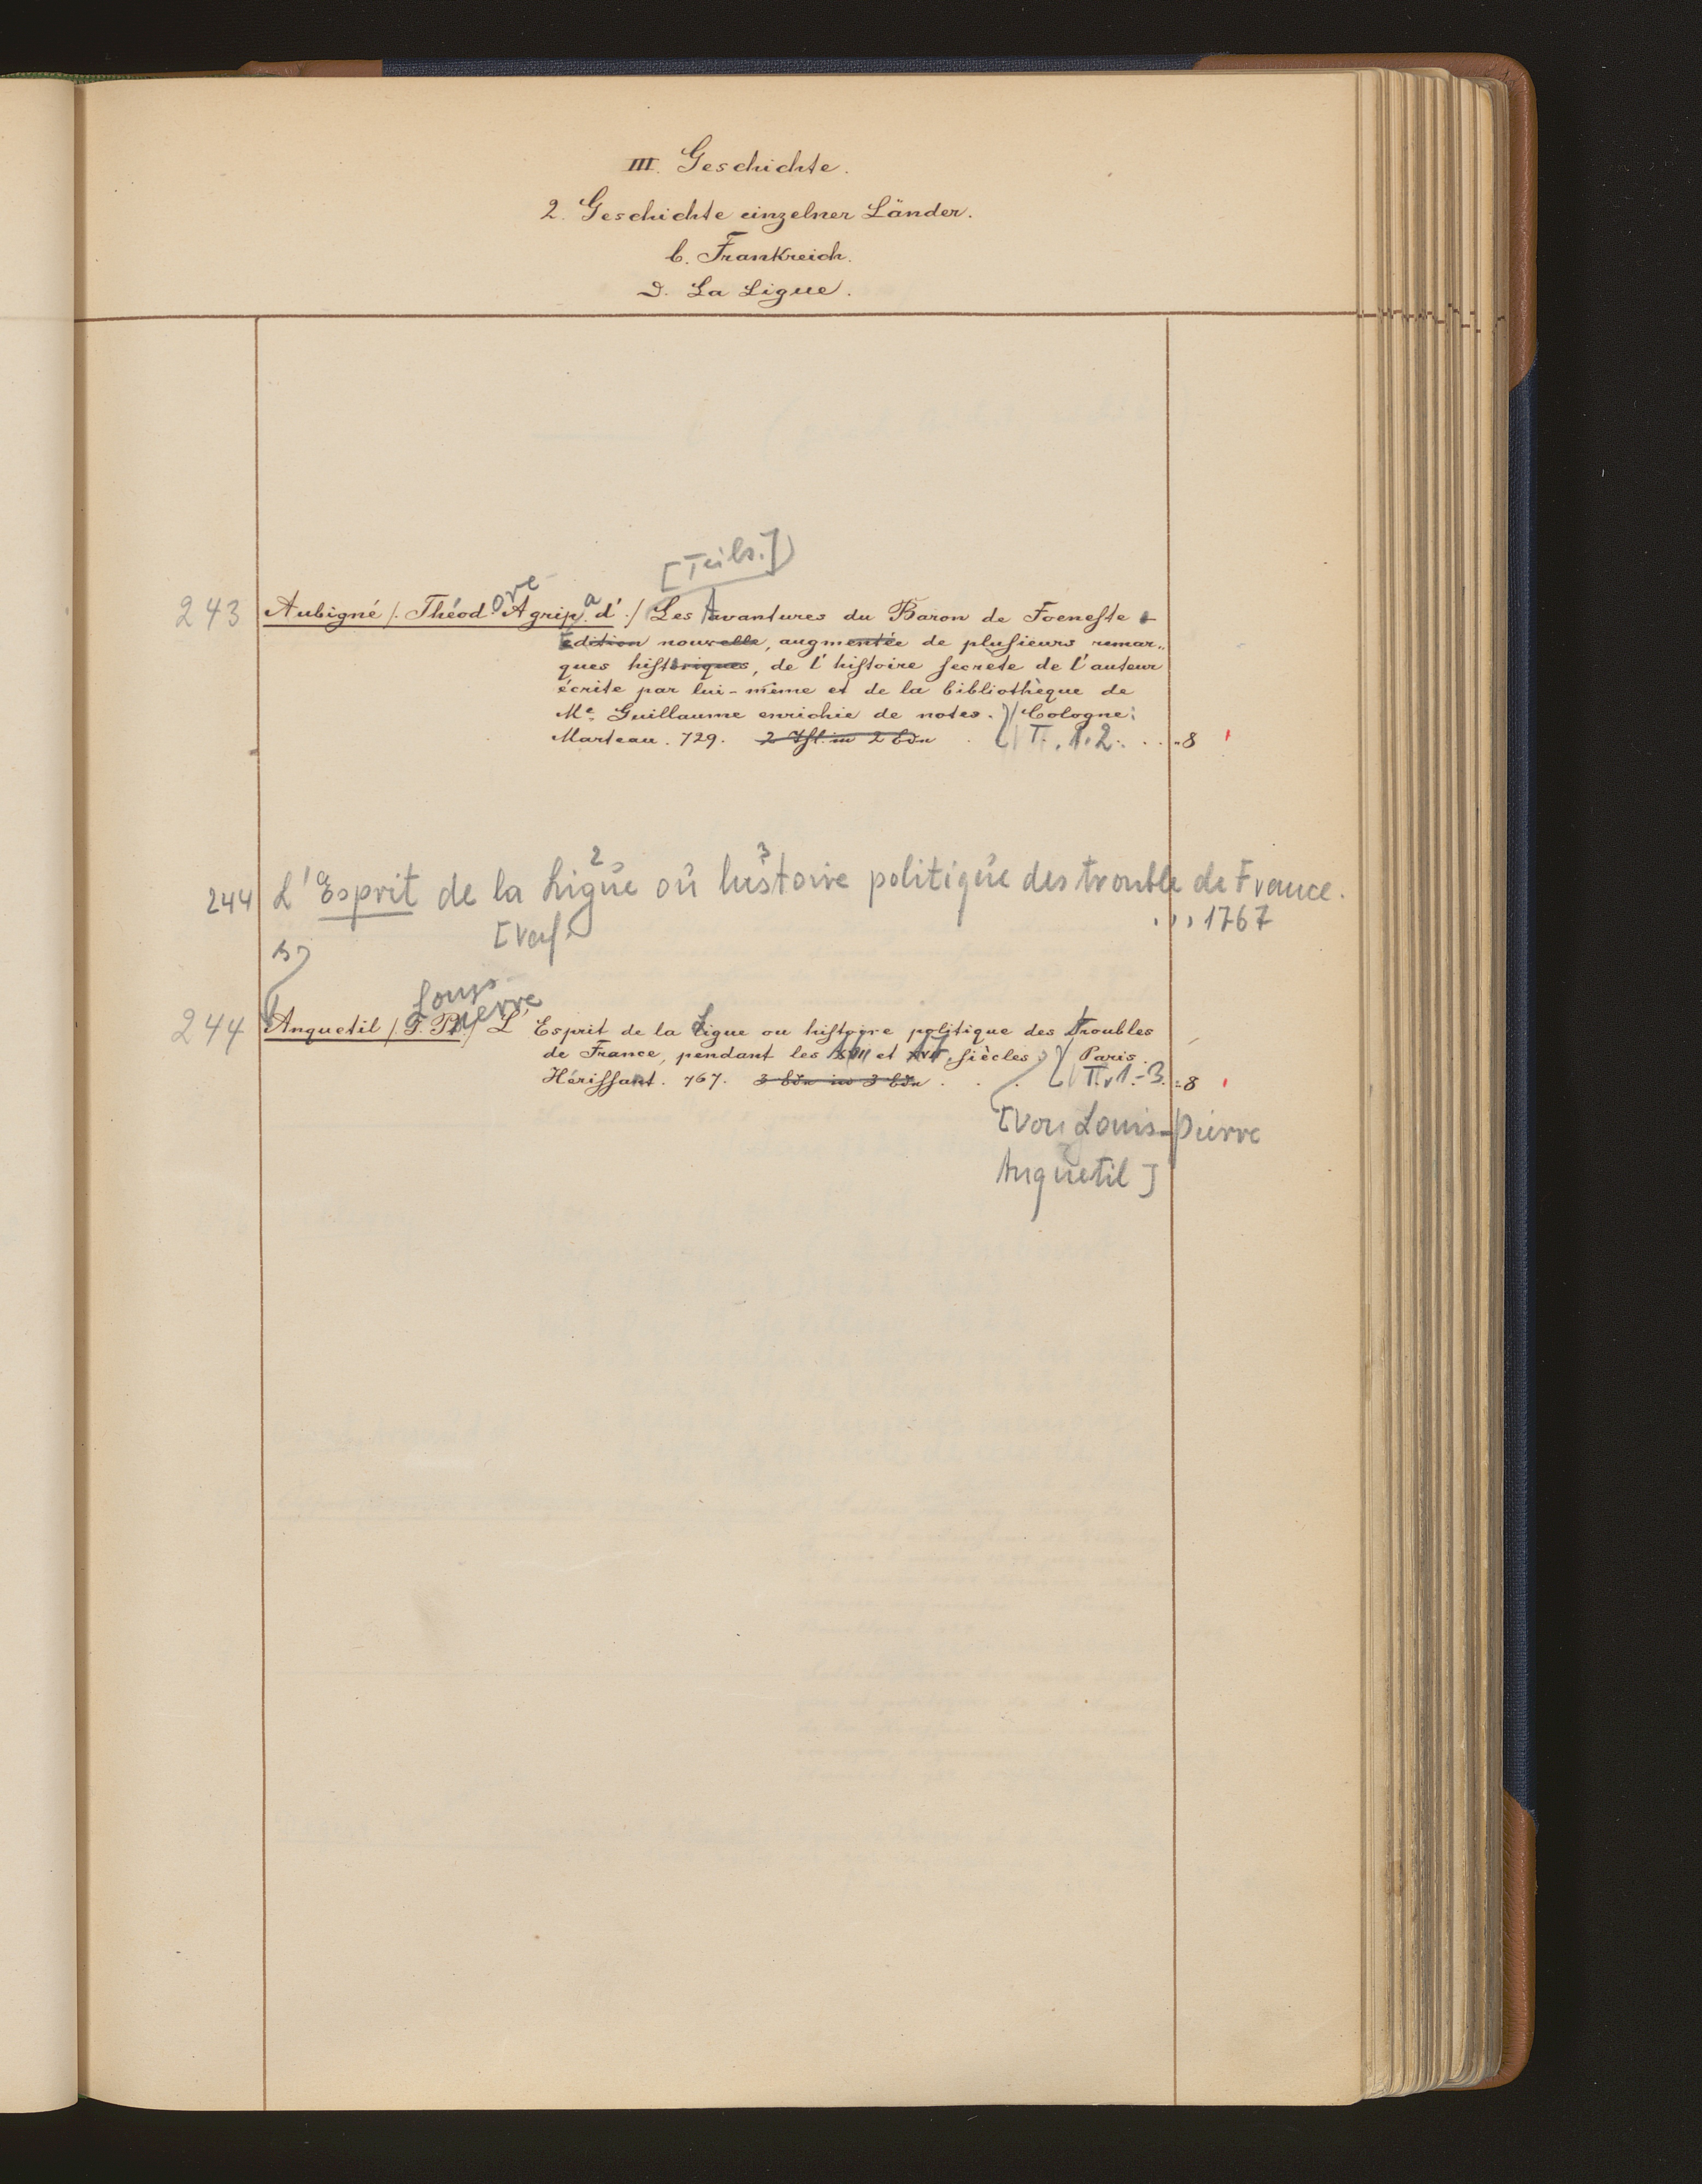 III. Geschichte.
2. Geschichte einzelner Länder.
b. Frankreich.
D. La Ligue.
[Teils.]
243 Aubigné /. Théodore Agrippa d' ./ Les Avantures du Baron de Foeneste
Edition nouvelle, augmentée de plusieurs remar-
ques historiques, de l'histoire secrète de l'auteur
écrite par lui-même et de la bibliothèque de
Me. Guillaume enrichie de notes. Cologne:
Marteau. 729. 2 Thl. in 2 Bdn T. 1.2. 8
244 L'Esprit de la Ligue où histoire politique des trouble de France.
[Verf. ... 1767
Louis
pierre
244 Anquetil / L'Esprit de la Ligue ou histoire politique des Troubles
de France, pendant les XVI et XVII siècles Paris.
Hérissant. 767. 3 Bdn in 3 Bdn T. 1.-3. 8
[von Louis-Pierre
Anquetil]